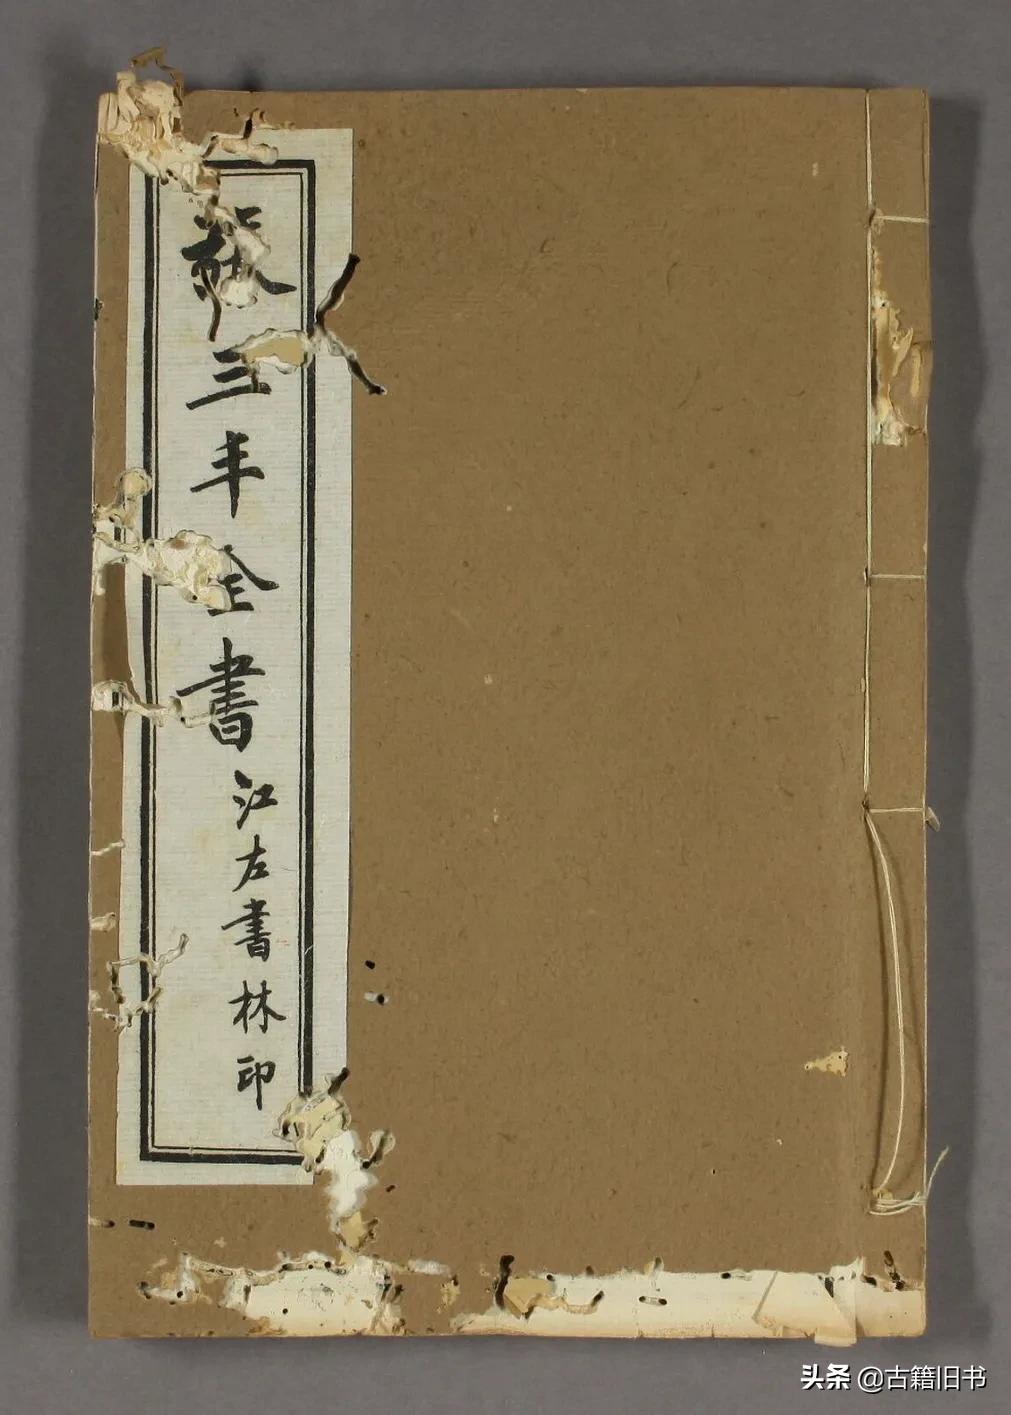 張三丰全書
江左書林印
头条 @古籍旧书